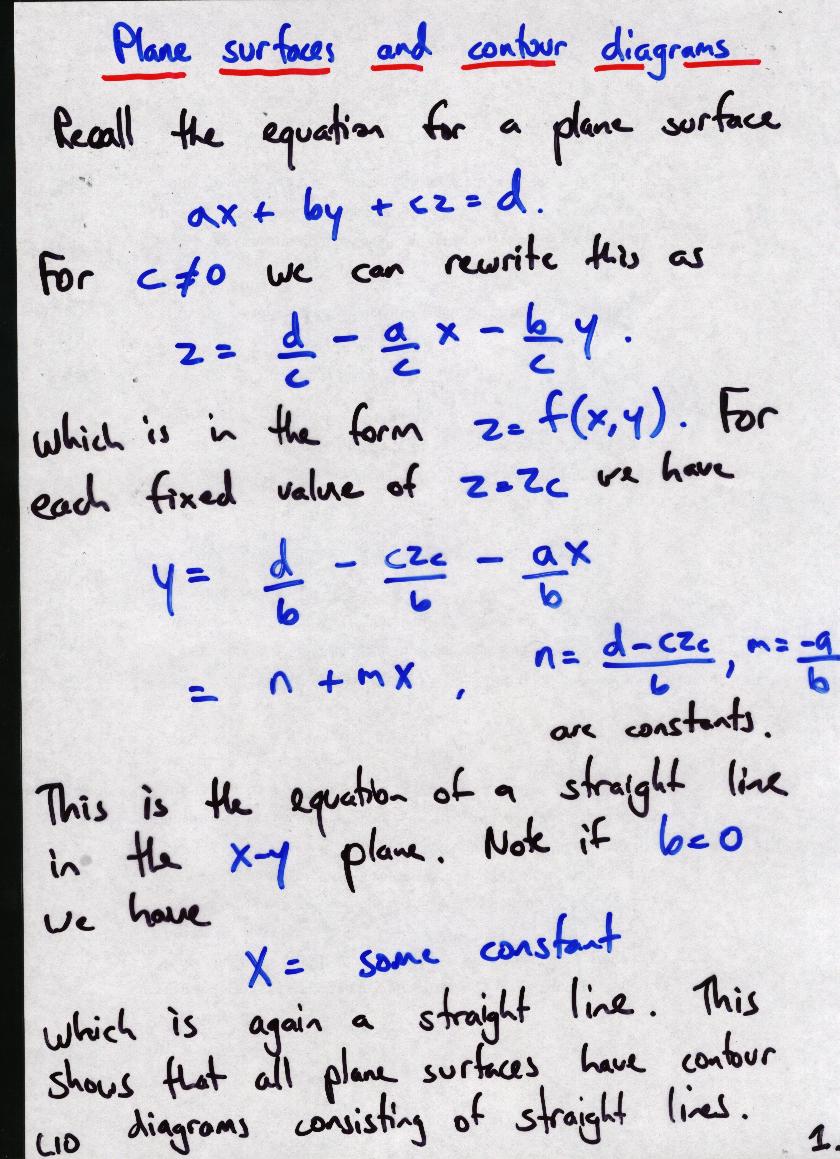 Plane surfaces and contour diagrams
Recall the equation for a plane surface
ax + by + cz = d.
For c ≠ 0 we can rewrite this as
z = d/c - a/c x - b/c y.
which is in the form z = f(x,y). For
each fixed value of z = zc we have
y = d/b - czc/b - ax/b
= n + mx , n = (d - czc)/b , m = -a/b
are constants.
This is the equation of a straight line
in the x-y plane. Note if b = 0
we have
x = some constant
which is again a straight line. This
shows that all plane surfaces have contour
L10 diagrams consisting of straight lines. 1.